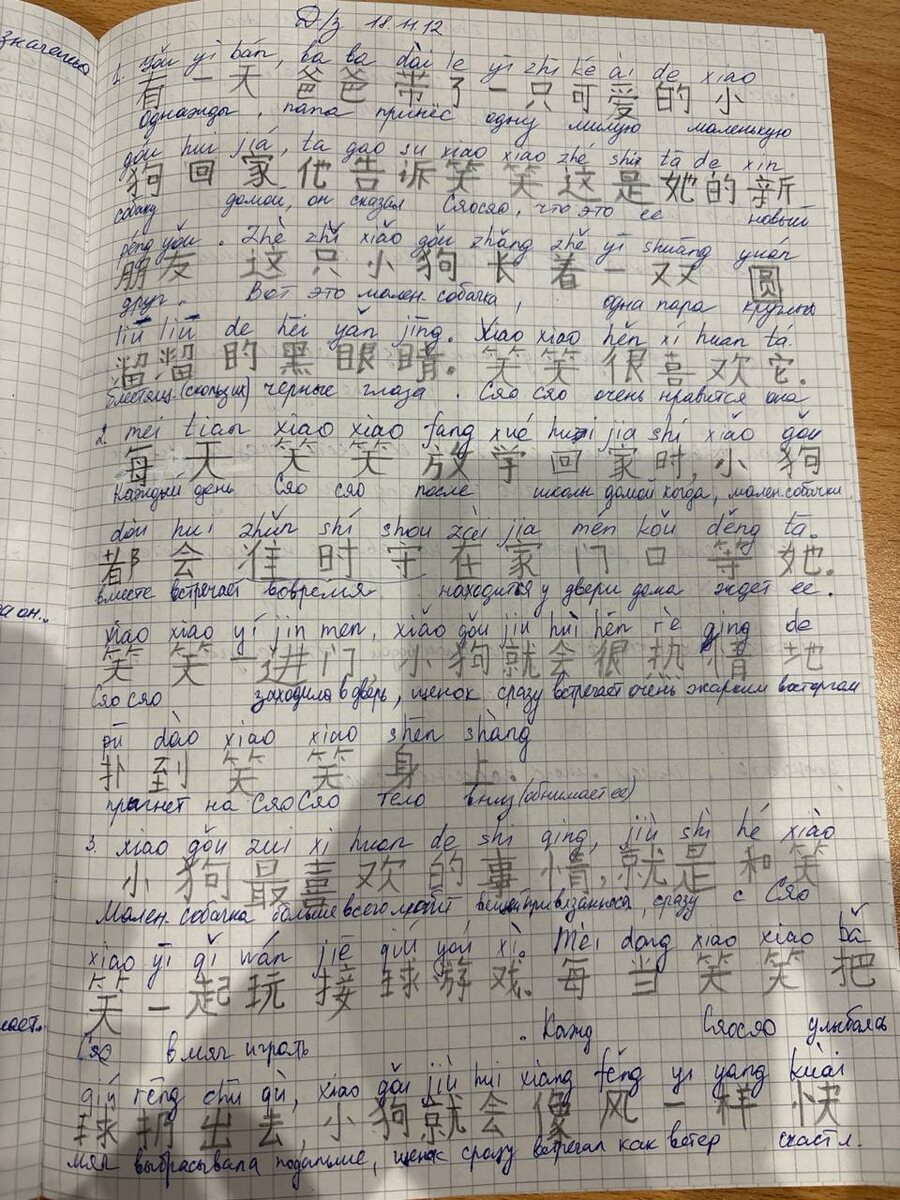 значению
Д/з 18.11.12
1. Yǒu yì bán, bà ba dài le yī zhī kě ài de xiao
有一天爸爸带了一只可爱的小
однажды, папа принёс одну милую маленькую
gǒu huí jiá, ta gao su xiao xiao zhé shì tā de xin
狗回家他告诉笑笑这是她的新
собаку домой, он сказал Сяосяо, что это ее новый
péng yǒu. Zhè zhī xiǎo gǒu zhǎng zhe yī shuāng yuán
朋友 这只小狗长着一双圆
друг. Вот это мален. собачка, одна пара круглых
liū liū de hēi yǎn jīng. Xiao xiao hěn xǐ huan tá.
溜溜的黑眼睛。笑笑很喜欢它.
блестящ. (скользких) черные глаза. Сяо сяо очень нравится она
2. mei tian xiao xiao fang xué hui jia shí xiǎo gǒu
每天笑笑放学回家时,小狗
каждый день Сяо сяо после школы домой когда, мален. собачка
dōu hui zhǔn shí shou zài jia mén kǒu děng tā.
都会准时守在家门口等她.
вместе встречает вовремя находится у двери дома ждет ее.
а он..
xiao xiao yí jìn men, xiǎo gǒu jiu huì hěn rè qing de
笑笑一进门,小狗就会很热情地
Сяо сяо заходила в дверь, щенок сразу встречает очень жарким восторгом
pū dào xiao xiao shēn shàng
扑到笑笑身上.
прыгнет на СяоСяо тело вниз (обнимает ее)
3. xiao gǒu zui xi huan de shi qing, jiù shì hé xiào
小狗最喜欢的事情,就是和笑
Мален. собачка больше всего любит вещи привязанность, сразу с Сяо
xiao yī qǐ wán jiē qiú yóu xì. Měi dang xiao xiao bǎ
笑一起玩接球游戏.每当笑笑把
Сяо в мяч играть. Кажд Сяосяо улыбаясь
qiú rēng chū qù, xiao gǒu jiù hui xiang fēng yi yang kuài
球扔出去,小狗就会像风一样快
мяч выбрасывала подальше, щенок сразу встречал как ветер счастл.